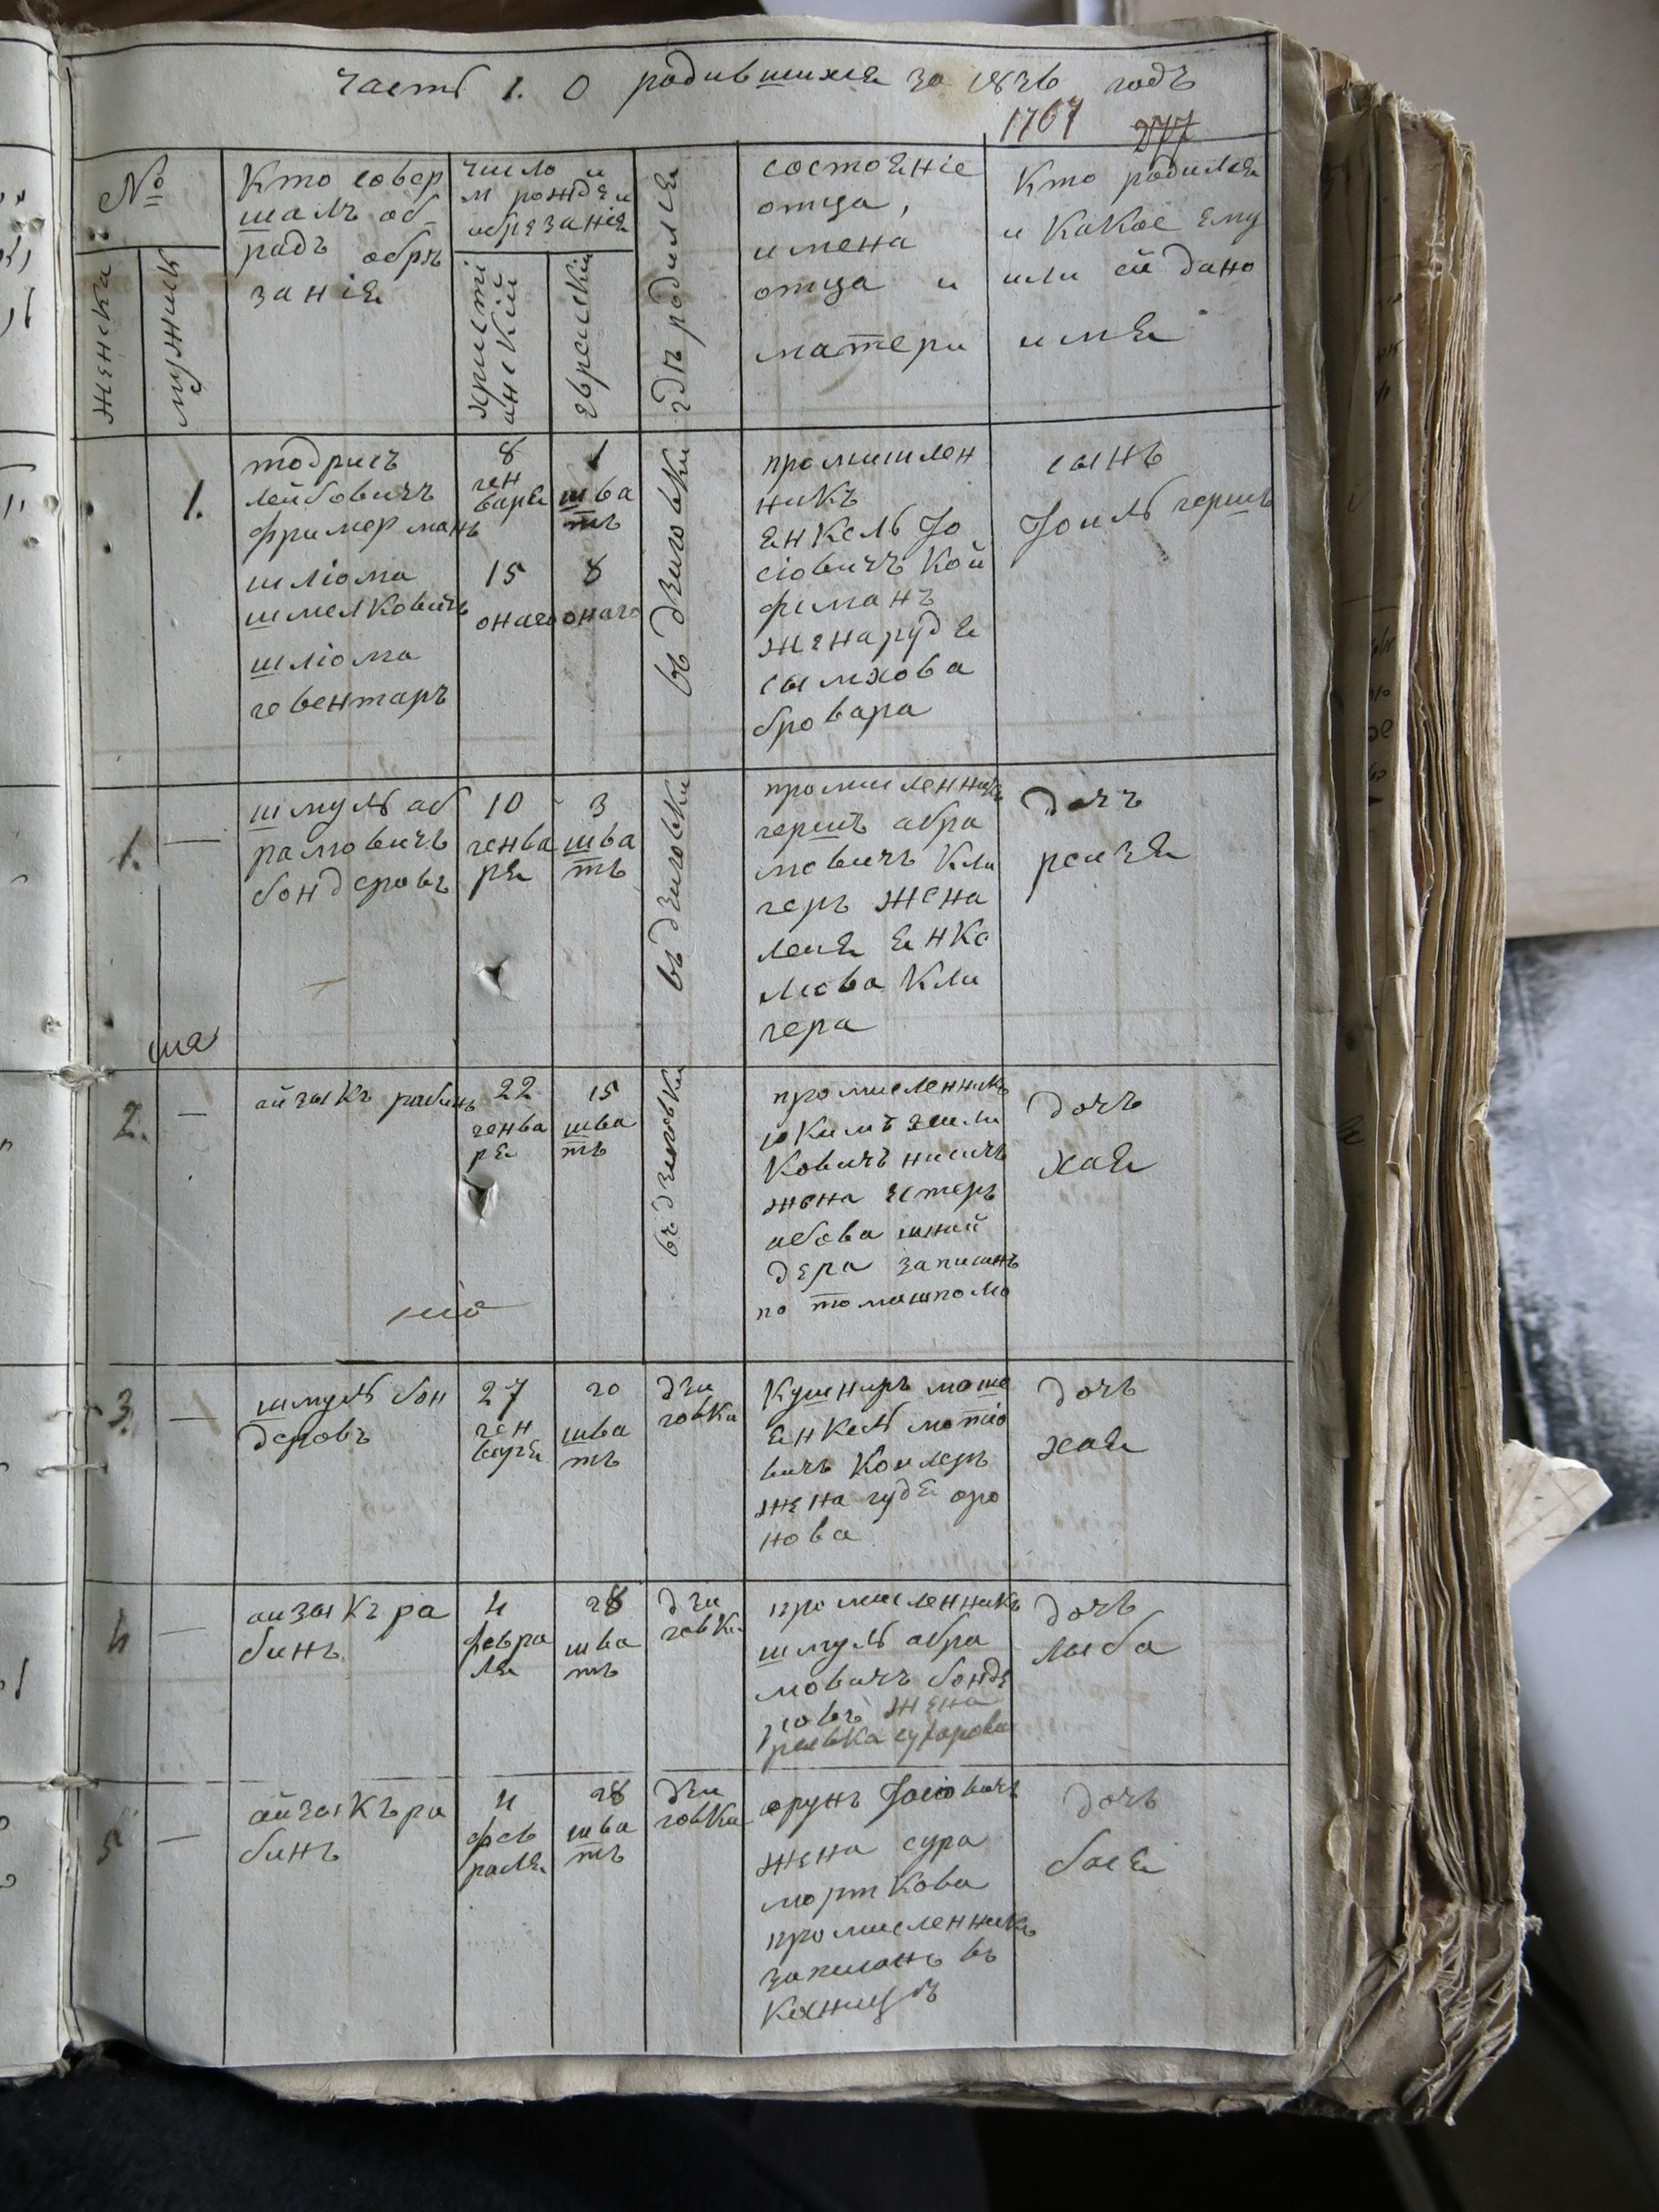 часть 1. О родившихся за 1836 годъ
1767 277
№
женска
мужиск
Кто совер
шалъ об-
радъ обрѣ
занія
число и
м рожде и
обрезанія
христі
анский
еврейский
гдѣ родился
состояніе
отца,
имена
отца и
матери
Кто родился
и какое ему
или ей дано
имя
1.
тодрисъ
лейбовичъ
фримерманъ
шліома
шмелковичъ
шліома
гевентаръ
8
ген
варя
15
онаго
1
шва
тъ
8
онаго
въ дзиговки
промишлен
никъ
янкель Іо
сіовичъ кой
фманъ
жена рудя
сымхова
бровара
сынъ
Іоиль гершъ
1. —
шмуль аб
рамовичъ
бондеровъ
10
генва
ря
3
шва
тъ
въ дзиговки
промисленникъ
гершъ абра
мовичъ кли
геръ жена
лея янке
лиова кли
гера
дочъ
реизя
2. —
айзыкъ рабинъ
22
генва
ря
15
шва
тъ
въ дзиговки
промисленникъ
ковичъ
жена естеръ
абова шнай
дера записанъ
по томашполю
дочъ
хая
3. —
шмуль бон
деровъ
27
ген
варя
20
шва
тъ
дзи
говка
Кушниръ
янкель мотіо
вичъ
жена гудя аро
нова
дочь
хая
4 —
аизыкъ ра
бинъ
4
февра
ля
28
шва
тъ
дзи
говка
промисленникъ
шмуль абра
мовичъ бонде
ровъ жена
ривка
дочь
лыба
5 —
айзыкъ ра
бинъ
4
фев
раля
28
шва
тъ
дзи
говка
арунъ Іосіовичъ
жена сура
морткова
промисленникъ
записанъ въ
дочь
бася